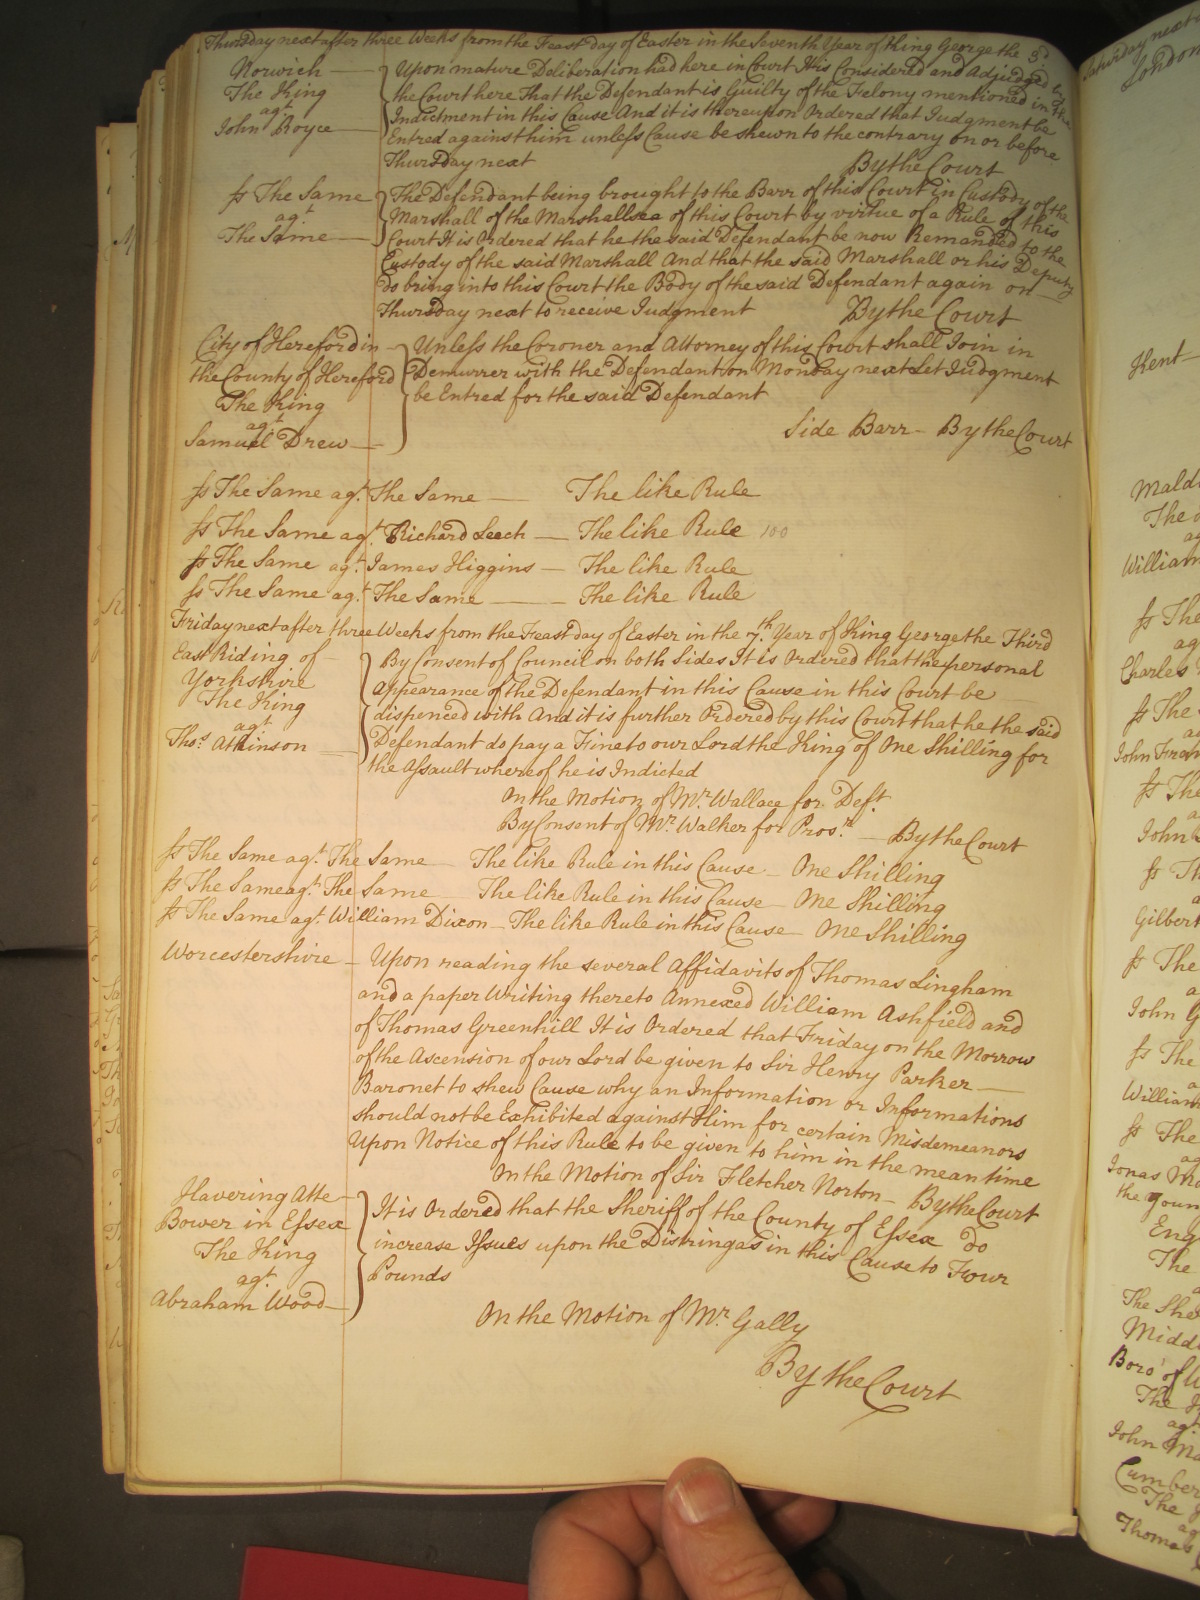 Thursday next after three Weeks from the Feast day of Easter in the Seventh Year of King George the 3d
Norwich
The King
agt
John Royce
Upon mature Deliberation had here in Court It is Considered and Adjudged by
the Court here That the Defendant is Guilty of the Felony mentioned in the
Indictment in this Cause And it is thereupon Ordered that Judgment be
Entred against him unless Cause be shewn to the contrary on or before
Thursday next
By the Court
Ss The Same
agt
The Same
The Defendant being brought to the Barr of this Court in Custody of the
Marshall of the Marshallsea of this Court by virtue of a Rule of this
Court It is Ordered that he the said Defendant be now Remanded to the
Custody of the said Marshall And that the said Marshall or his Deputy
do bring into this Court the Body of the said Defendant again on
Thursday next to receive Judgment
By the Court
City of Hereford in
the County of Hereford
The King
agt
Samuel Drew
Unless the Coroner and Attorney of this Court shall Join in
Demurrer with the Defendant on Monday next Let Judgment
be Entred for the said Defendant
Side Barr - By the Court
Ss The Same agt. The Same — The like Rule
Ss The Same agt. Richard Leech — The like Rule 100
Ss The Same agt. James Higgins — The like Rule
Ss The Same agt. The Same — The like Rule
Friday next after three Weeks from the Feast day of Easter in the 7th. Year of King George the Third
East Riding of
Yorkshire
The King
agt
Thos. Atkinson
By Consent of Council on both Sides It is Ordered that the personal
Appearance of the Defendant in this Cause in this Court be
dispenced with And it is further Ordered by this Court that he the said
Defendant do pay a Fine to our Lord the King of One Shilling for
the Assault whereof he is Indicted
On the Motion of Mr. Wallace for Deft.
By Consent of Mr. Walker for Prosr. — By the Court
Ss The Same agt. The Same — The like Rule in this Cause — One Shilling
Ss The Same agt. The Same — The like Rule in this Cause — One Shilling
Ss The Same agt. William Dixon — The like Rule in this Cause — One Shilling
Worcestershire — Upon reading the several Affidavits of Thomas Lingham
and a paper Writing thereto Annexed William Ashfield and
of Thomas Greenhill It is Ordered that Friday on the Morrow
of the Ascension of our Lord be given to Sir Henry Parker
Baronet to shew Cause why an Information or Informations
should not be Exhibited against Him for certain Misdemeanors
Upon Notice of this Rule to be given to him in the mean time
On the Motion of Sir Fletcher Norton — By the Court
Havering Atte
Bower in Essex
The King
agt.
Abraham Wood
It is Ordered that the Sheriff of the County of Essex do
increase Issues upon the Distringas in this Cause to Four
Pounds
On the Motion of Mr. Gally
By the Court
Saturday next
London
Kent
The
William
Ss The
Charles
Ss The
John
Ss The
John
Gilbert
Ss The
John G
Ss The
William
Ss The
Jonas
the
The
The
Boro' of
The
agt.
John
The
Thomas